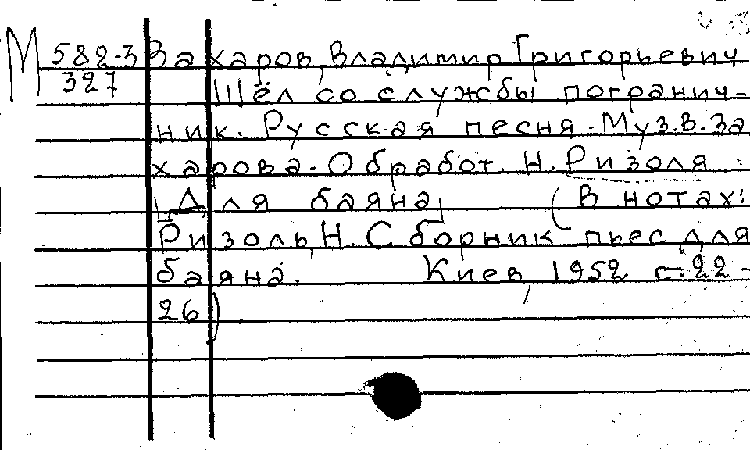 М 582-3 Захаров, Владимир Григорьевич
327 Шёл со службы погранич-
ник. Русская песня. Муз. В. За
харова. Обработ. Н. Ризоля.
[Для баяна] (В нотах:
Ризоль, Н. Сборник пьес для
баяна. Киев, 1952 с. 22-
26)